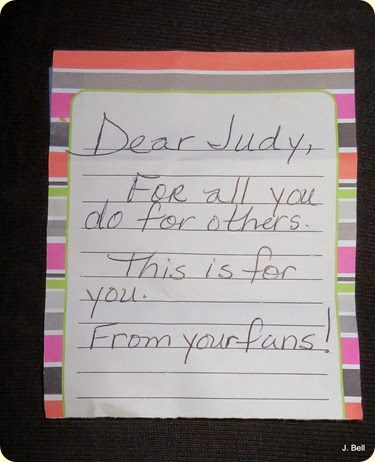 Dear Judy,
For all you
do for others.
This is for
you.
From your fans!
J. Bell